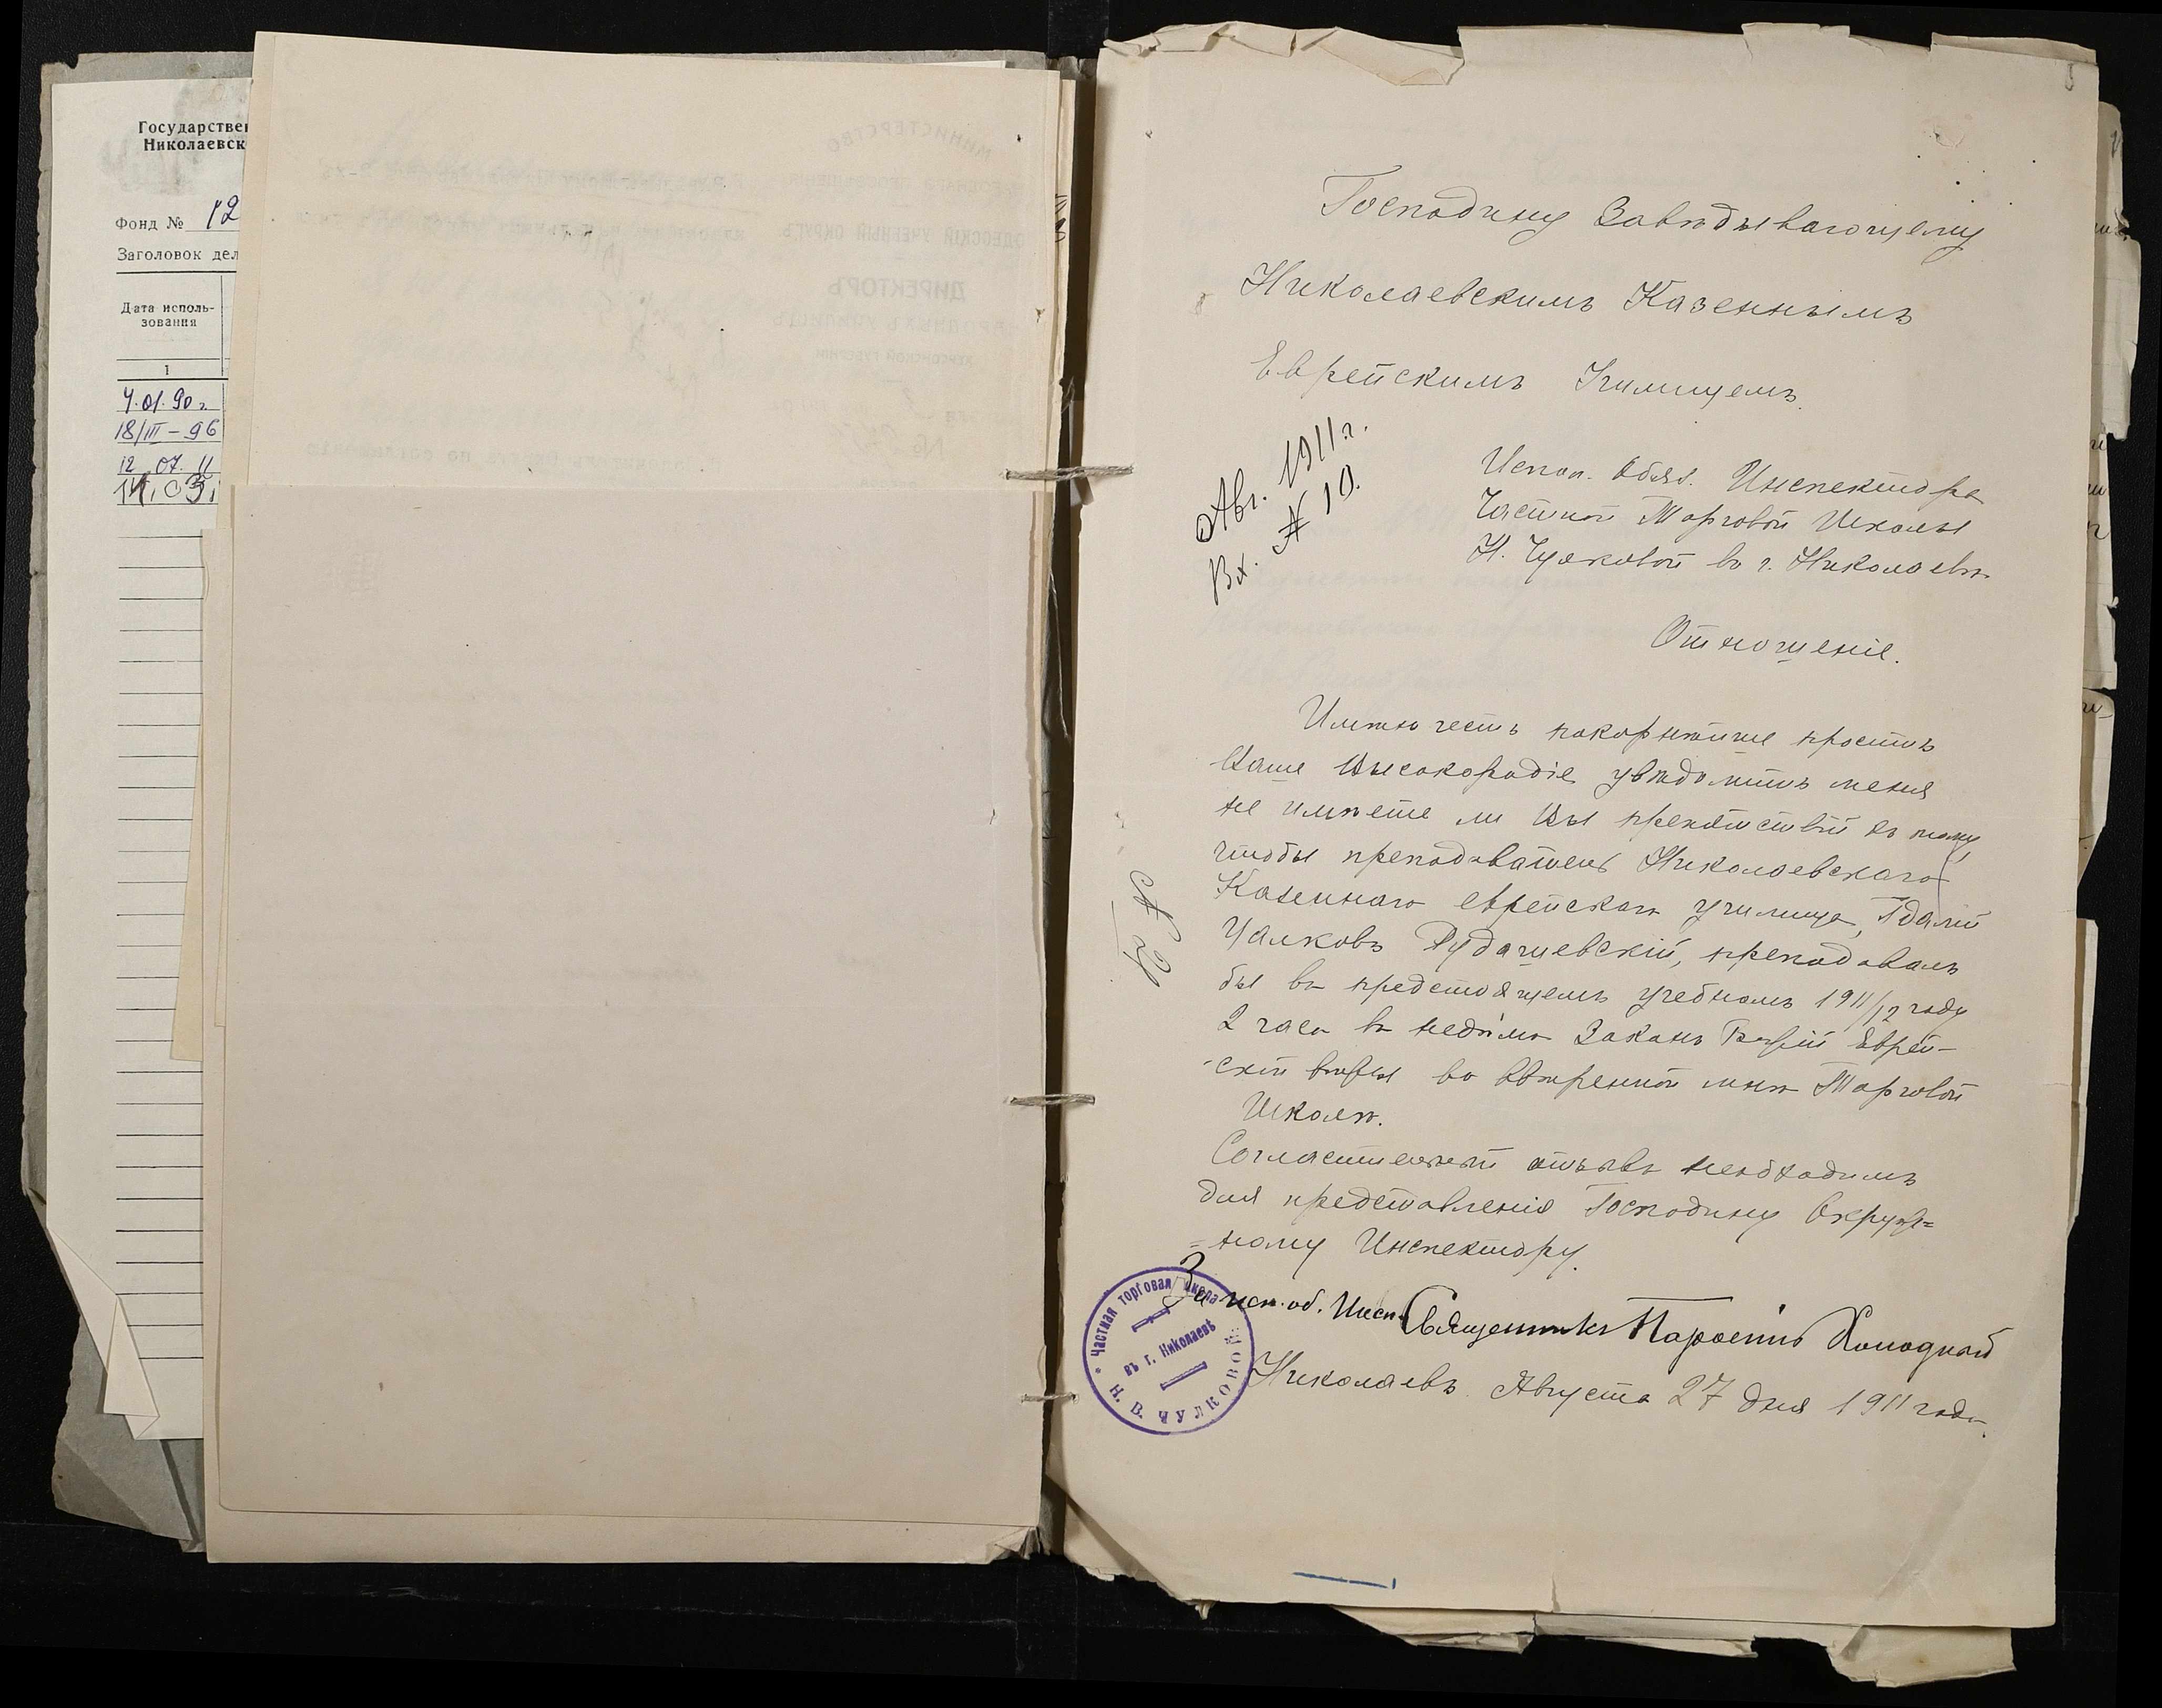 Государствен
Николаевск
Фонд № 12
Заголовок дел
Дата исполь-
зования
1
4.01.90г.
18/III – 96
12 07. 11
14.03.
Господину Завѣдывающему
Николаевскимъ Казеннымъ
Еврейскимъ Училищемъ.
Авг. 1911г.
Вх. № 10.
Испол. Обяз. Инспектора
Частной Торговой Школы
Н. Чулковой въ г. Николаевѣ
Отношеніе.
Имѣю честь покорнѣйше просить
Ваше Высокородіе увѣдомить меня
не имѣете ли Вы препятствій къ тому,
чтобы преподаватель Николаевскаго
Казеннаго еврейскаго училища,
преподавалъ
бы въ предстоящемъ учебномъ 1911/12 году
2 часа въ недѣлю Законъ Еврей-
ской вѣры во ввѣренной мнѣ Торговой
Школѣ.
отзывъ необходимъ
для представленія Господину Окруж=
=ному Инспектору.
За исп. об. Инсп. Священникъ Холодный
Николаевъ Августа 27 дня 1911 года.
Частная торговая школа
въ г. Николаевѣ
Н. В. ЧУЛКОВОЙ
МИНИСТЕРСТВО
ОДЕССКІЙ УЧЕБНЫЙ ОКРУГЪ
ДИРЕКТОРЪ
НАРОДНЫХЪ УЧИЛИЩЪ
ХЕРСОНСКОЙ ГУБЕРНІИ
№